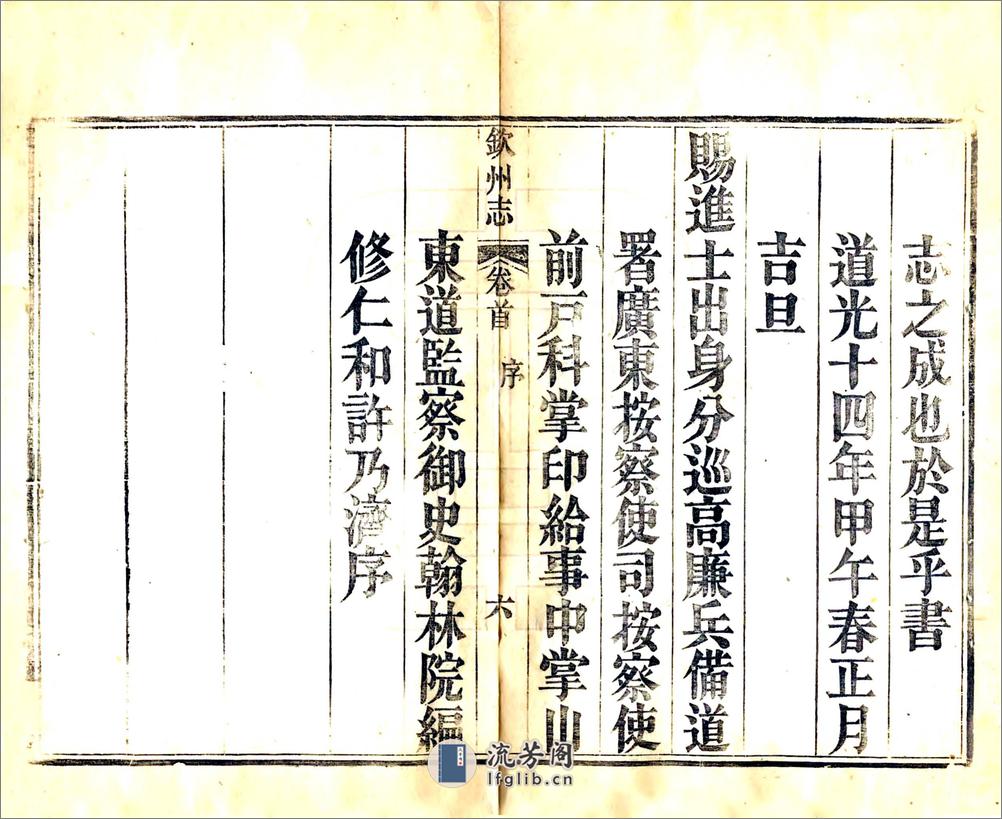 志之成也於是乎書
道光十四年甲午春正月
吉旦
賜進士出身分巡高廉兵備道
署廣東按察使司按察使
前戸科掌印給事中掌山
欽州志 卷首 序 六
東道監察御史翰林院編
修仁和許乃濟序
流芳阁
lfglib.cn